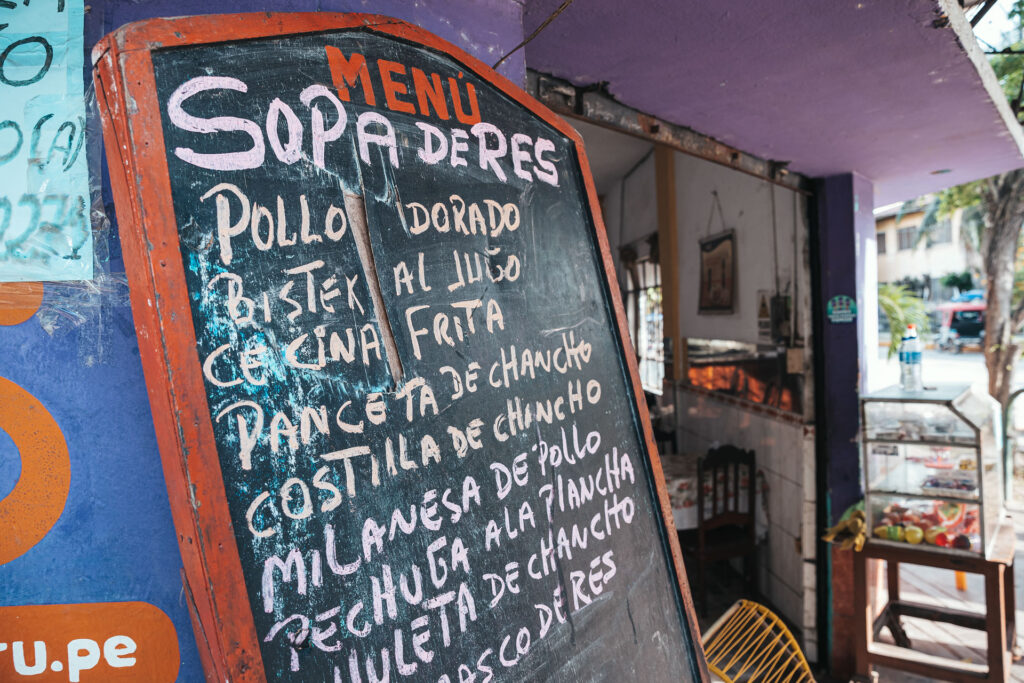 MENÚ
SOPA DE RES
POLLO DORADO
BISTEK AL JUGO
CECINA FRITA
PANCETA DE CHANCHO
COSTILLA DE CHANCHO
MILANESA DE POLLO
PECHUGA A LA PLANCHA
CHULETA DE CHANCHO
DE RES
ru.pe